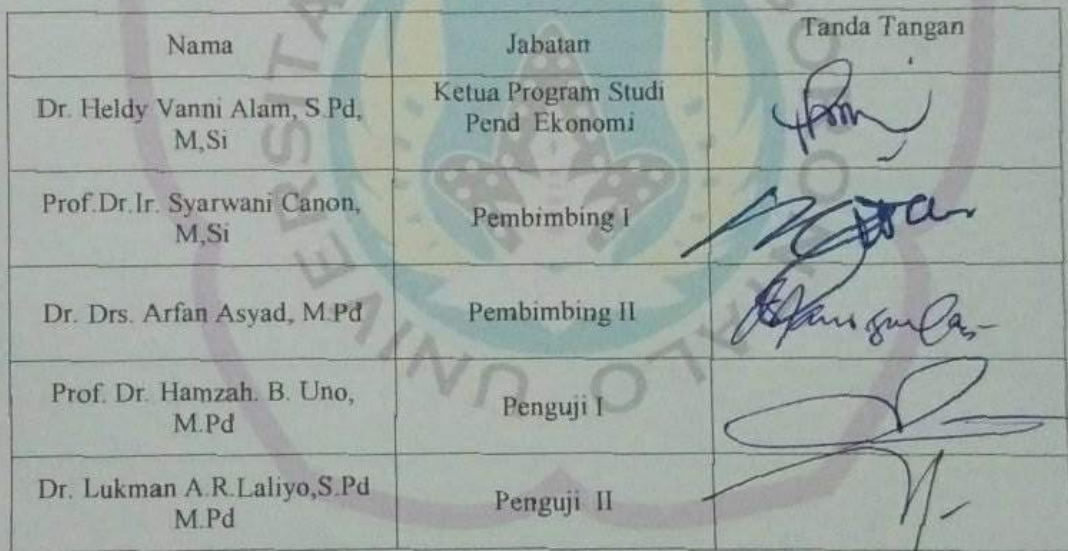 Nama Jabatan Tanda Tangan
Dr. Heldy Vanni Alam, S.Pd,
M,Si
Ketua Program Studi
Pend Ekonomi
Prof.Dr.Ir. Syarwani Canon,
M,Si
Pembimbing I
Dr. Drs. Arfan Asyad, M.Pd Pembimbing II
Prof. Dr. Hamzah. B. Uno,
M.Pd
Penguji I
Dr. Lukman A.R.Laliyo,S.Pd
M.Pd
Penguji II